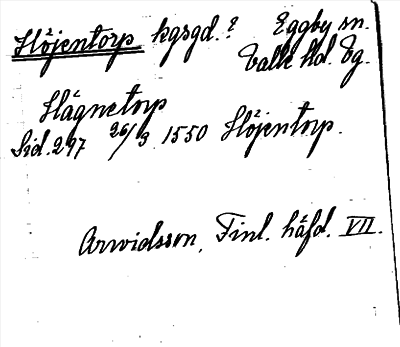 Höjentorp kgsgd.? Eggby sn.
Valle hd. Vg.
Hägnetorp
Sid. 297 26/3 1550 Höjentorp.
Arwidsson, Finl. häfd. VII.